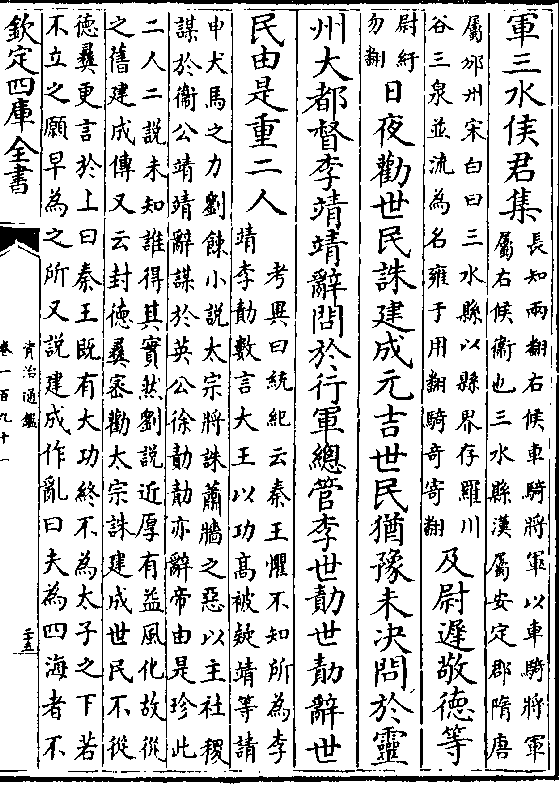 軍三水侯君集
長知兩翻右候車騎將軍以車騎將軍
屬右候衛也三水縣漢屬安定郡隋唐
屬邠州宋白曰三水縣以縣界存羅川
谷三泉並流為名雍于用翻騎奇寄翻
及尉遲敬德等
尉紆
勿翻
日夜勸世民誅建成元吉世民猶豫未決問於靈
州大都督李靖靖辭問於行軍總管李世勣世勣辭世
民由是重二人
考異曰統紀云秦王懼不知所為李
靖李勣數言大王以功高被疑靖等請
申犬馬之力劉餗小說太宗將誅蕭牆之惡以主社稷
謀於衛公靖靖辭謀於英公徐勣勣亦辭帝由是珍此
二人二說未知誰得其實然劉說近厚有益風化故從
之舊建成傳又云封德彝密勸太宗誅建成世民不從
德彝更言於上曰秦王既有大功終不為太子之下若
不立之願早為之所又說建成作亂曰夫為四海者不
欽定四庫全書
資治通鑑
卷一百九十一